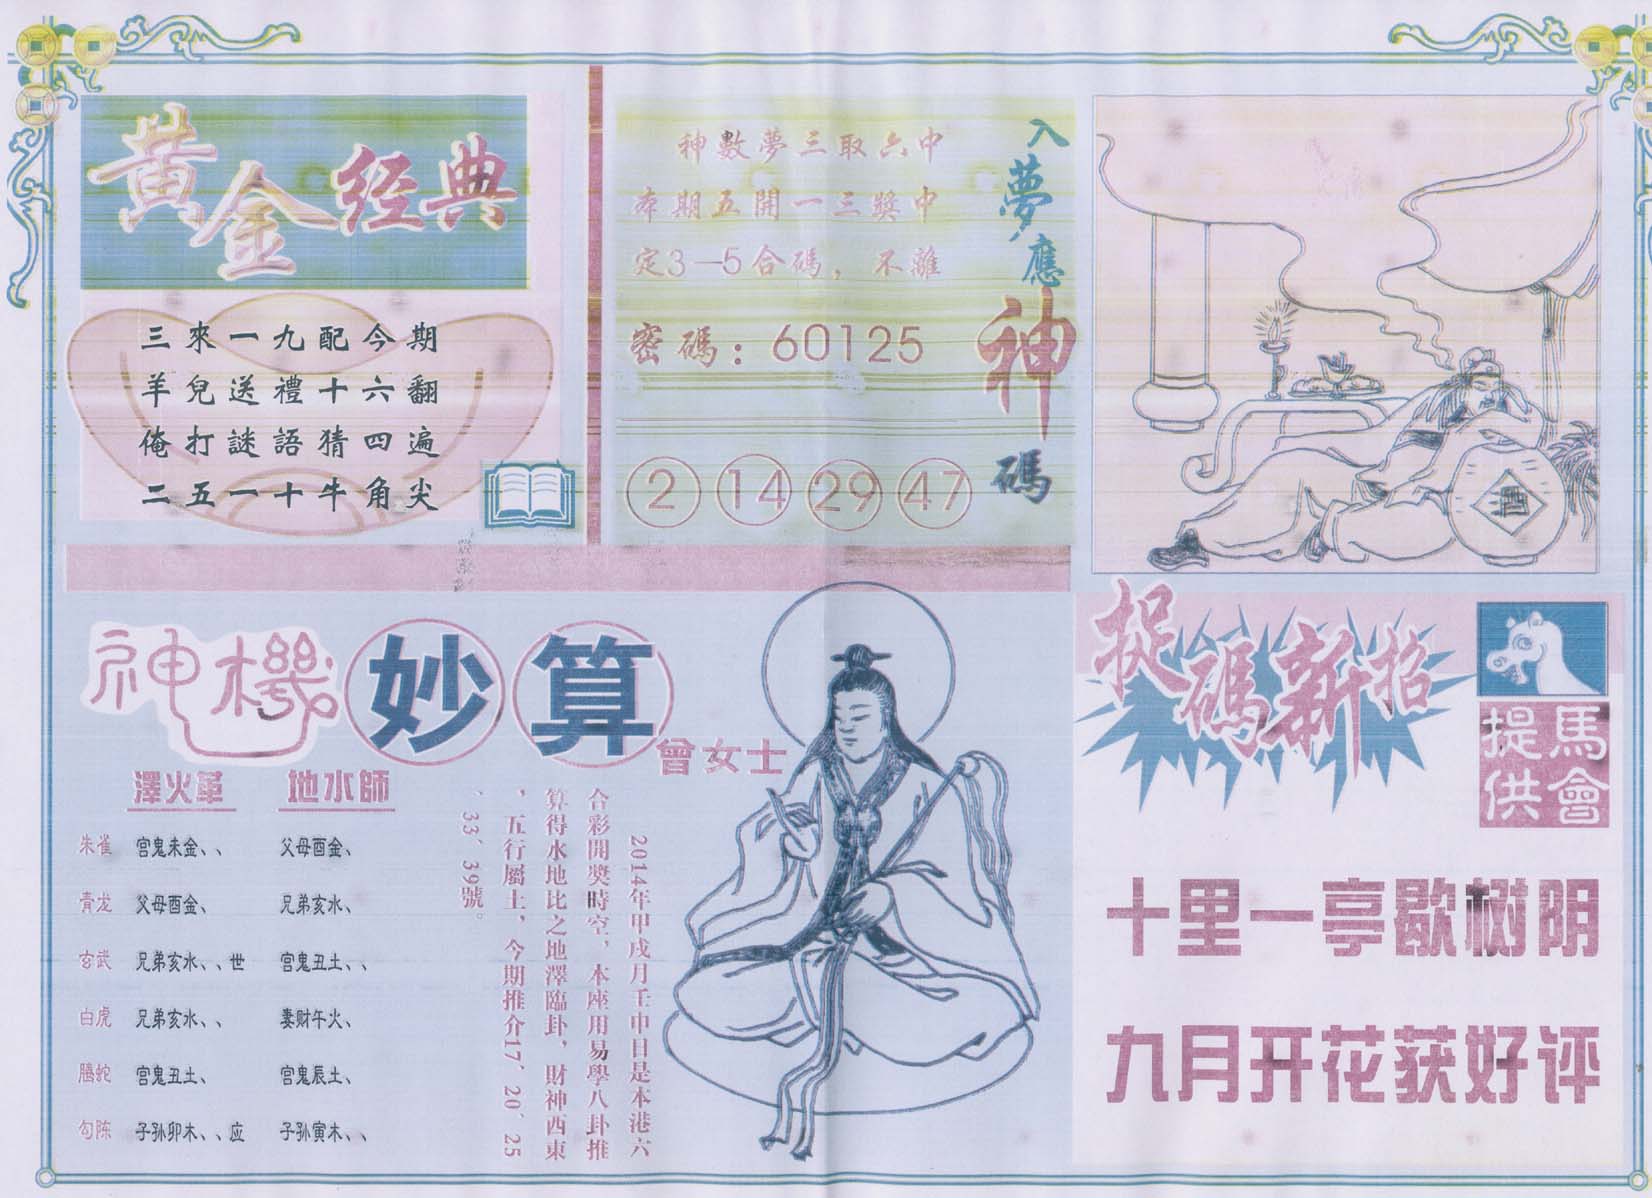 黃金经典
三來一九配今期
羊兒送禮十六翻
俺打謎語猜四遍
二五一十牛角尖
入夢應神碼
神數夢三取六中
本期五開一三獎中
定3—5合碼，不離
密碼：60125
2 14 29 47
酒
神機妙算
曾女士
澤火革 地水師
朱雀 宫鬼未金、、 父母酉金、
青龙 父母酉金、 兄弟亥水、
玄武 兄弟亥水、、世 宫鬼丑土、、
白虎 兄弟亥水、、 妻财午火、
螣蛇 宫鬼丑土、 宫鬼辰土、
勾陈 子孙卯木、、应 子孙寅木、、
2014年甲戌月壬申日是本港六
合彩開獎時空，本座用易學八卦推
算得水地比之地澤臨卦，財神西東
，五行屬土，今期推介17、20、25
、33、39號。
捉碼新招
馬會
提供
十里一亭歇树阴
九月开花获好评